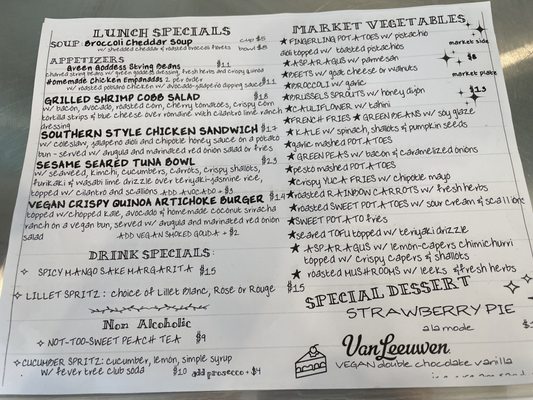 LUNCH SPECIALS
SOUP: Broccoli Cheddar Soup cup $5
w/ shredded cheddar & roasted broccoli florets bowl $8
APPETIZERS
Green Goddess String Beans $11
charred string beans w/ green goddess dressing, fresh herbs and crispy quinoa
Homemade Chicken Empanadas 2 per order
w/ roasted poblano chicken w/ avocado-jalapeño dipping sauce $11
GRILLED SHRIMP COBB SALAD $18
w/ bacon, avocado, roasted corn, cherry tomatoes, crispy corn
tortilla strips & blue cheese over romaine with cilantro lime ranch
dressing
SOUTHERN STYLE CHICKEN SANDWICH $17
w/ coleslaw, jalapeño aioli and chipotle honey sauce on a potato
bun - served w/ arugula and marinated red onion salad or fries
SESAME SEARED TUNA BOWL $23
w/ seaweed, kimchi, cucumbers, carrots, crispy shallots,
furikaki & wasabi lime drizzle over teriyaki-jasmine rice,
topped w/ cilantro and scallions ADD AVOCADO + $3
VEGAN CRISPY QUINOA ARTICHOKE BURGER
topped w/chopped kale, avocado & homemade coconut sriracha
ranch on a vegan bun, served w/ arugula and marinated red onion
salad ADD VEGAN SMOKED GOUDA + $2
DRINK SPECIALS:
SPICY MANGO SAKE MARGARITA $15
LILLET SPRITZ: choice of Lillet Blanc, Rose or Rouge $15
Non Alcoholic
NOT-TOO-SWEET PEACH TEA $9
CUCUMBER SPRITZ: cucumber, lemon, simple syrup
w/ fever tree club soda $10 add prosecco + $4
MARKET VEGETABLES
★ FINGERLING POTATOES w/ pistachio
aioli topped w/ toasted pistachios
★ ASPARAGUS w/ parmesan
★ BEETS w/ goat cheese or walnuts
★ BROCCOLI w/ garlic
★ BRUSSELS SPROUTS w/ honey dijon
★ CAULIFLOWER w/ tahini
★ FRENCH FRIES ★ GREEN BEANS w/ soy glaze
★ KALE w/ spinach, shallots & pumpkin seeds
★ garlic mashed POTATOES
★ GREEN PEAS w/ bacon & caramelized onions
★ pesto mashed POTATOES
★ crispy YUCA FRIES w/ chipotle mayo
★ roasted RAINBOW CARROTS w/ fresh herbs
★ roasted SWEET POTATOES w/ sour cream &
★ SWEET POTATO fries
★ seared TOFU topped w/ teriyaki drizzle
★ ASPARAGUS w/ lemon-capers chimichurri
topped w/ crispy capers & shallots
★ roasted MUSHROOMS w/ leeks & fresh herbs
market side
$8
market plate
$23
SPECIAL DESSERT
STRAWBERRY PIE
a la mode
Van Leeuwen
VEGAN double chocolate vanilla